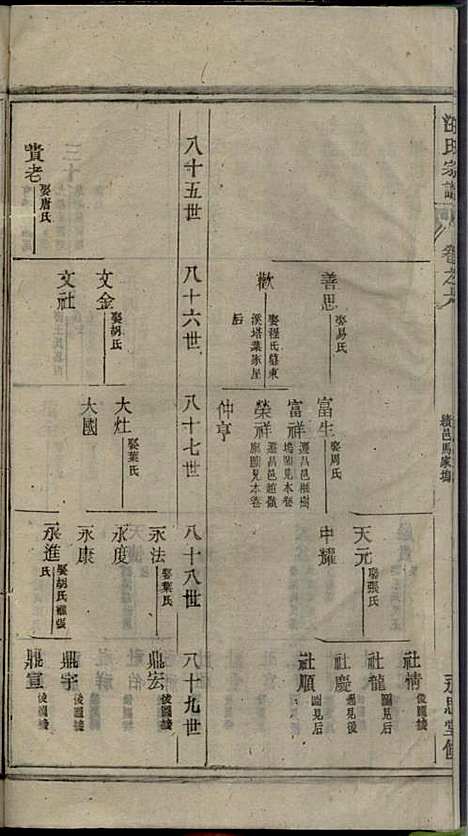 汪氏家譜
卷之六
績邑馬家塢
善思
娶易氏
歡
娶程氏墓東
溪塔葉家屋
后
富生
娶周氏
富祥
榮祥
遷昌邑
圖見本卷
仲亨
天元
娶張氏
中耀
社情
後圖接
社龍
圖見后
社慶
見后
社順
圖見后
八十五世
八十六世
八十七世
八十八世
八十九世
貴老
娶唐氏
文金
娶胡氏
文社
大灶
娶葉氏
大國
永法
娶葉氏
永度
永康
永進
娶胡氏繼張
氏
鼎宏
後圖接
鼎宇
後圖接
鼎宣
後圖接